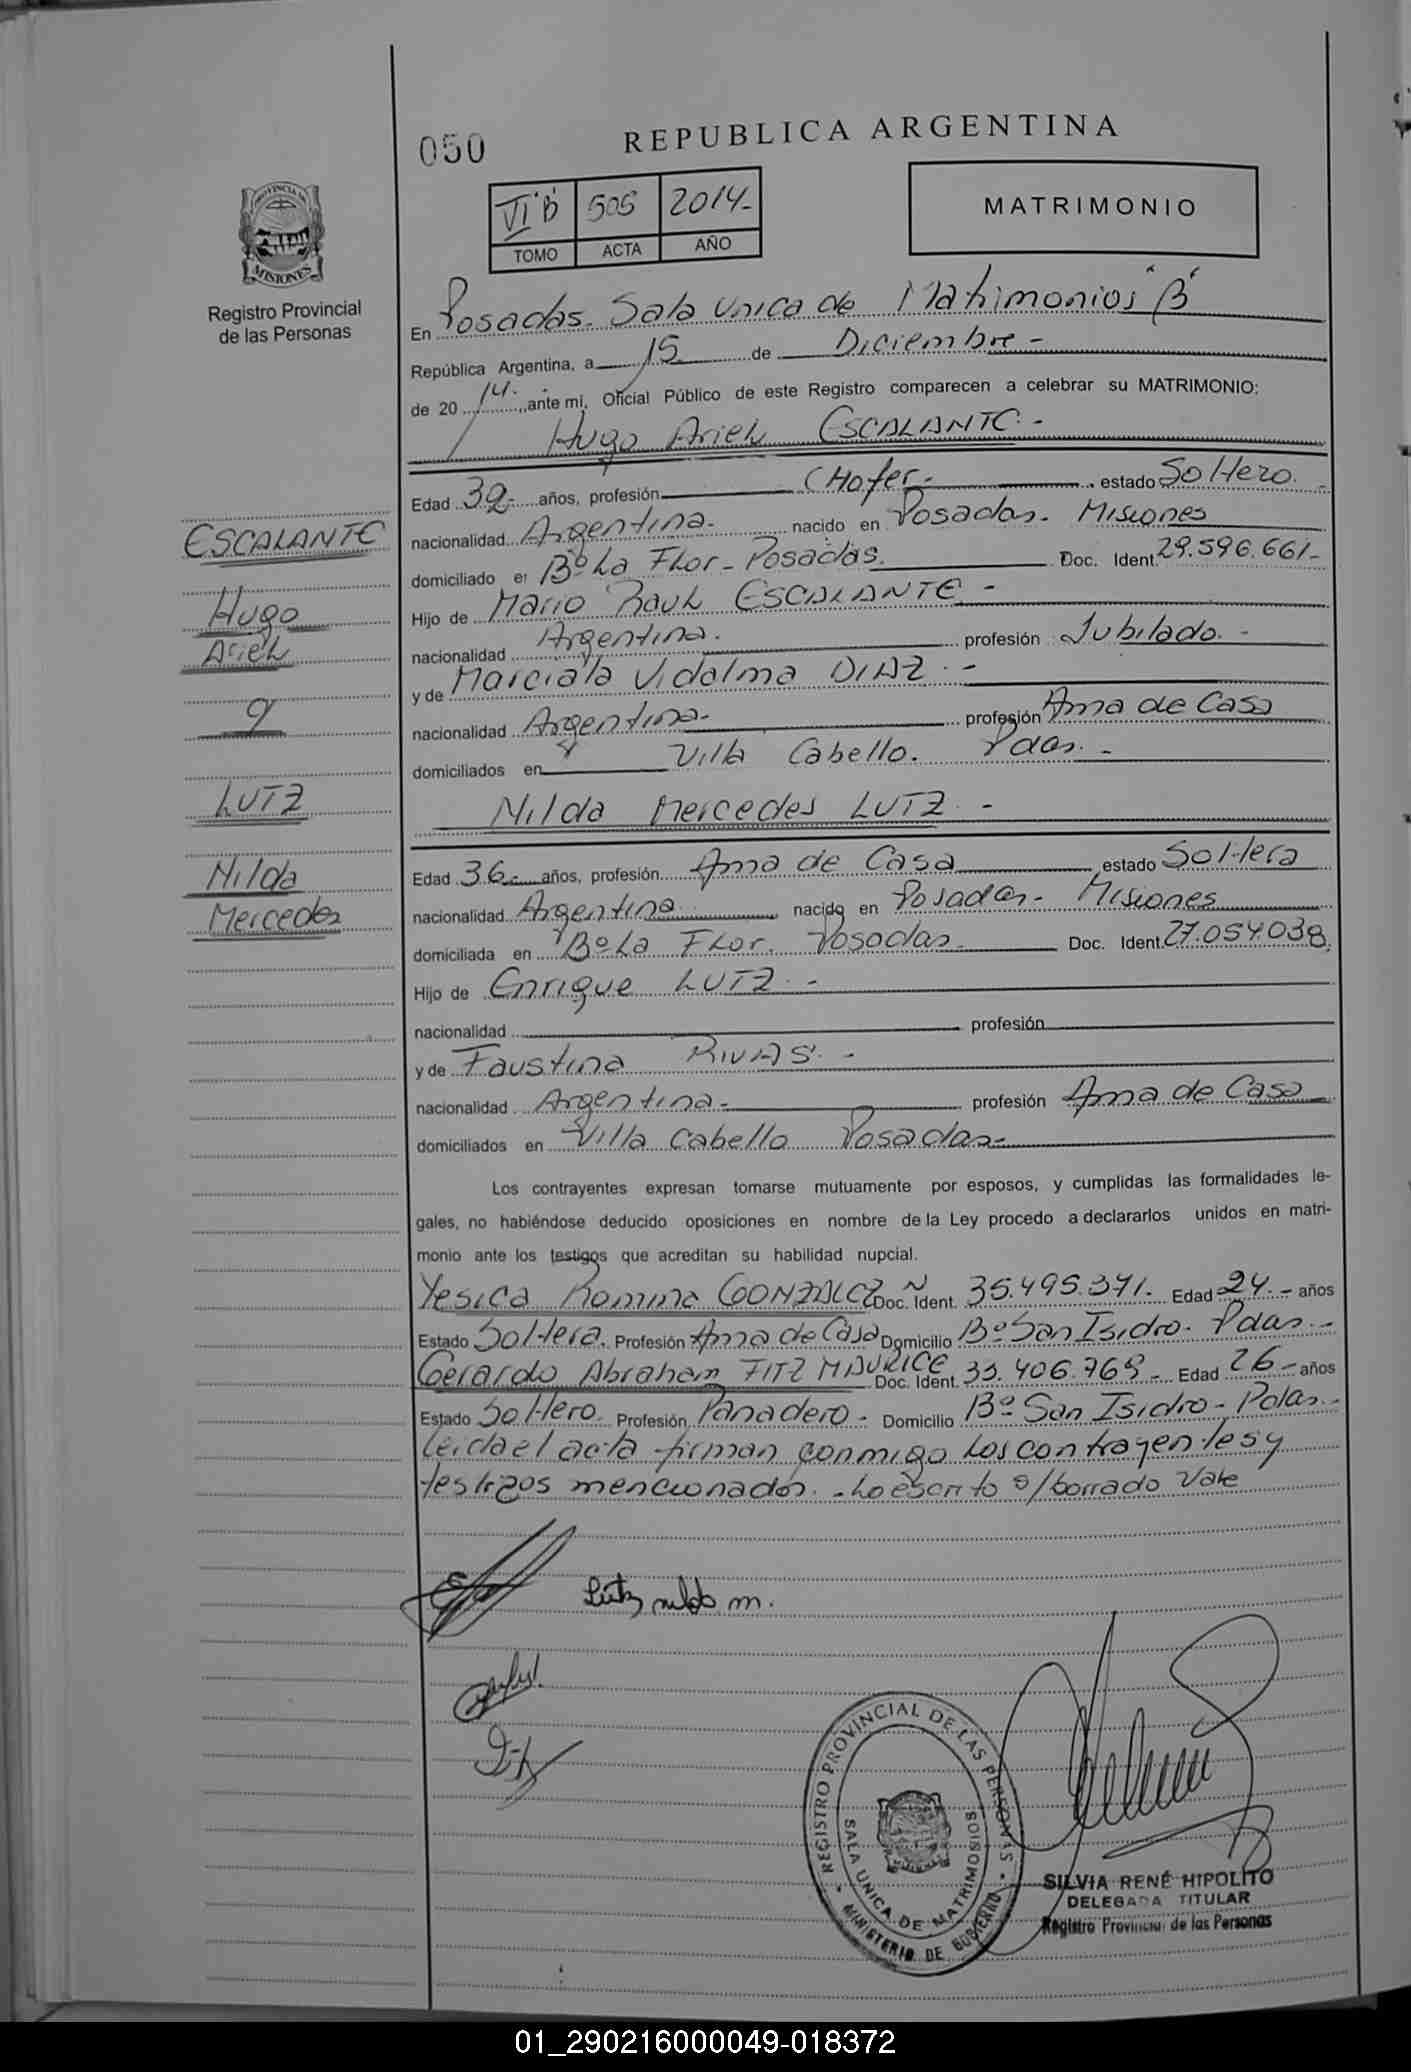 050
REPUBLICA ARGENTINA
VI"B" 505 2014-
TOMO ACTA AÑO
MATRIMONIO
PROVINCIA DE
MISIONES
Registro Provincial
de las Personas
En Posadas. Sala unica de Matrimonios "B"
República Argentina, a 15 de Diciembre -
de 20 14.- ante mi, Oficial Público de este Registro comparecen a celebrar su MATRIMONIO:
Hugo Ariel ESCALANTE.-
Edad 32- años, profesión CHofer- estado Soltero.-
nacionalidad Argentina. nacido en Posadas. Misiones
domiciliado en Bº La Flor - Posadas. Doc. Ident. 29.596.661-
Hijo de Mario Raul ESCALANTE -
nacionalidad Argentina. profesión Jubilado.-
y de Marciala Vidalma DIAZ.-
nacionalidad Argentina- profesión Ama de Casa
domiciliados en Villa Cabello. Pdas.-
Nilda Mercedes LUTZ.-
ESCALANTE
Hugo
Ariel
LUTZ
Nilda
Mercedes
Edad 36- años, profesión Ama de Casa estado Soltera
nacionalidad Argentina nacido en Posadas- Misiones
domiciliada en Bº La Flor. Posadas- Doc. Ident. 27.054.038
Hijo de Enrique LUTZ.-
nacionalidad profesión
y de Faustina RIVAS.-
nacionalidad Argentina- profesión Ama de Casa
domiciliados en Villa Cabello Posadas-
Los contrayentes expresan tomarse mutuamente por esposos, y cumplidas las formalidades le-
gales, no habiéndose deducido oposiciones en nombre de la Ley procedo a declararlos unidos en matri-
monio ante los testigos que acreditan su habilidad nupcial.
Yesica Romina GONZALEZ Doc. Ident. 35.495.371. Edad 24.- años
Estado Soltera. Profesión Ama de Casa Domicilio Bº San Isidro. Pdas.-
Gerardo Abraham FITZ MAURICE Doc. Ident. 33.406.769- Edad 26- años
Estado Soltero. Profesión Panadero- Domicilio Bº San Isidro- Pdas.-
Leida el acta firman conmigo los contrayentes y
testigos mencionados.- Lo escrito s/borrado Vale
Lutz nilda m.
REGISTRO PROVINCIAL DE LAS PERSONAS
SALA UNICA DE MATRIMONIOS
MINISTERIO DE GOBIERNO
SILVIA RENÉ HIPOLITO
DELEGADA TITULAR
Registro Provincial de las Personas
01_290216000049-018372